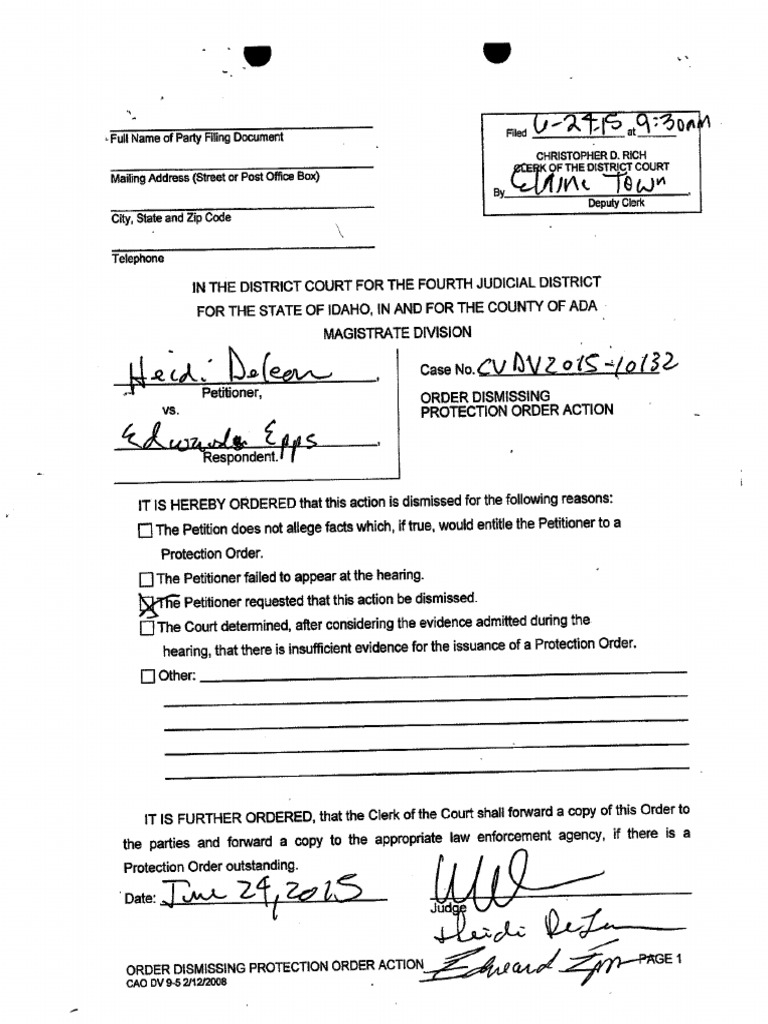 Full Name of Party Filing Document
Filed 6-24-15 at 9:30am
CHRISTOPHER D. RICH
CLERK OF THE DISTRICT COURT
Mailing Address (Street or Post Office Box)
By Elaine Town
Deputy Clerk
City, State and Zip Code
Telephone
IN THE DISTRICT COURT FOR THE FOURTH JUDICIAL DISTRICT
FOR THE STATE OF IDAHO, IN AND FOR THE COUNTY OF ADA
MAGISTRATE DIVISION
Heidi Deleon,
Petitioner,
vs.
Case No. CVDV2015-10132
ORDER DISMISSING
PROTECTION ORDER ACTION
Epps,
Respondent.
IT IS HEREBY ORDERED that this action is dismissed for the following reasons:
The Petition does not allege facts which, if true, would entitle the Petitioner to a
Protection Order.
The Petitioner failed to appear at the hearing.
The Petitioner requested that this action be dismissed.
The Court determined, after considering the evidence admitted during the
hearing, that there is insufficient evidence for the issuance of a Protection Order.
Other:
IT IS FURTHER ORDERED, that the Clerk of the Court shall forward a copy of this Order to
the parties and forward a copy to the appropriate law enforcement agency, if there is a
Protection Order outstanding.
Date: June 24, 2015
Judge
Heidi DeLeon
Edward Epps
ORDER DISMISSING PROTECTION ORDER ACTION PAGE 1
CAO DV 9-5 2/12/2008